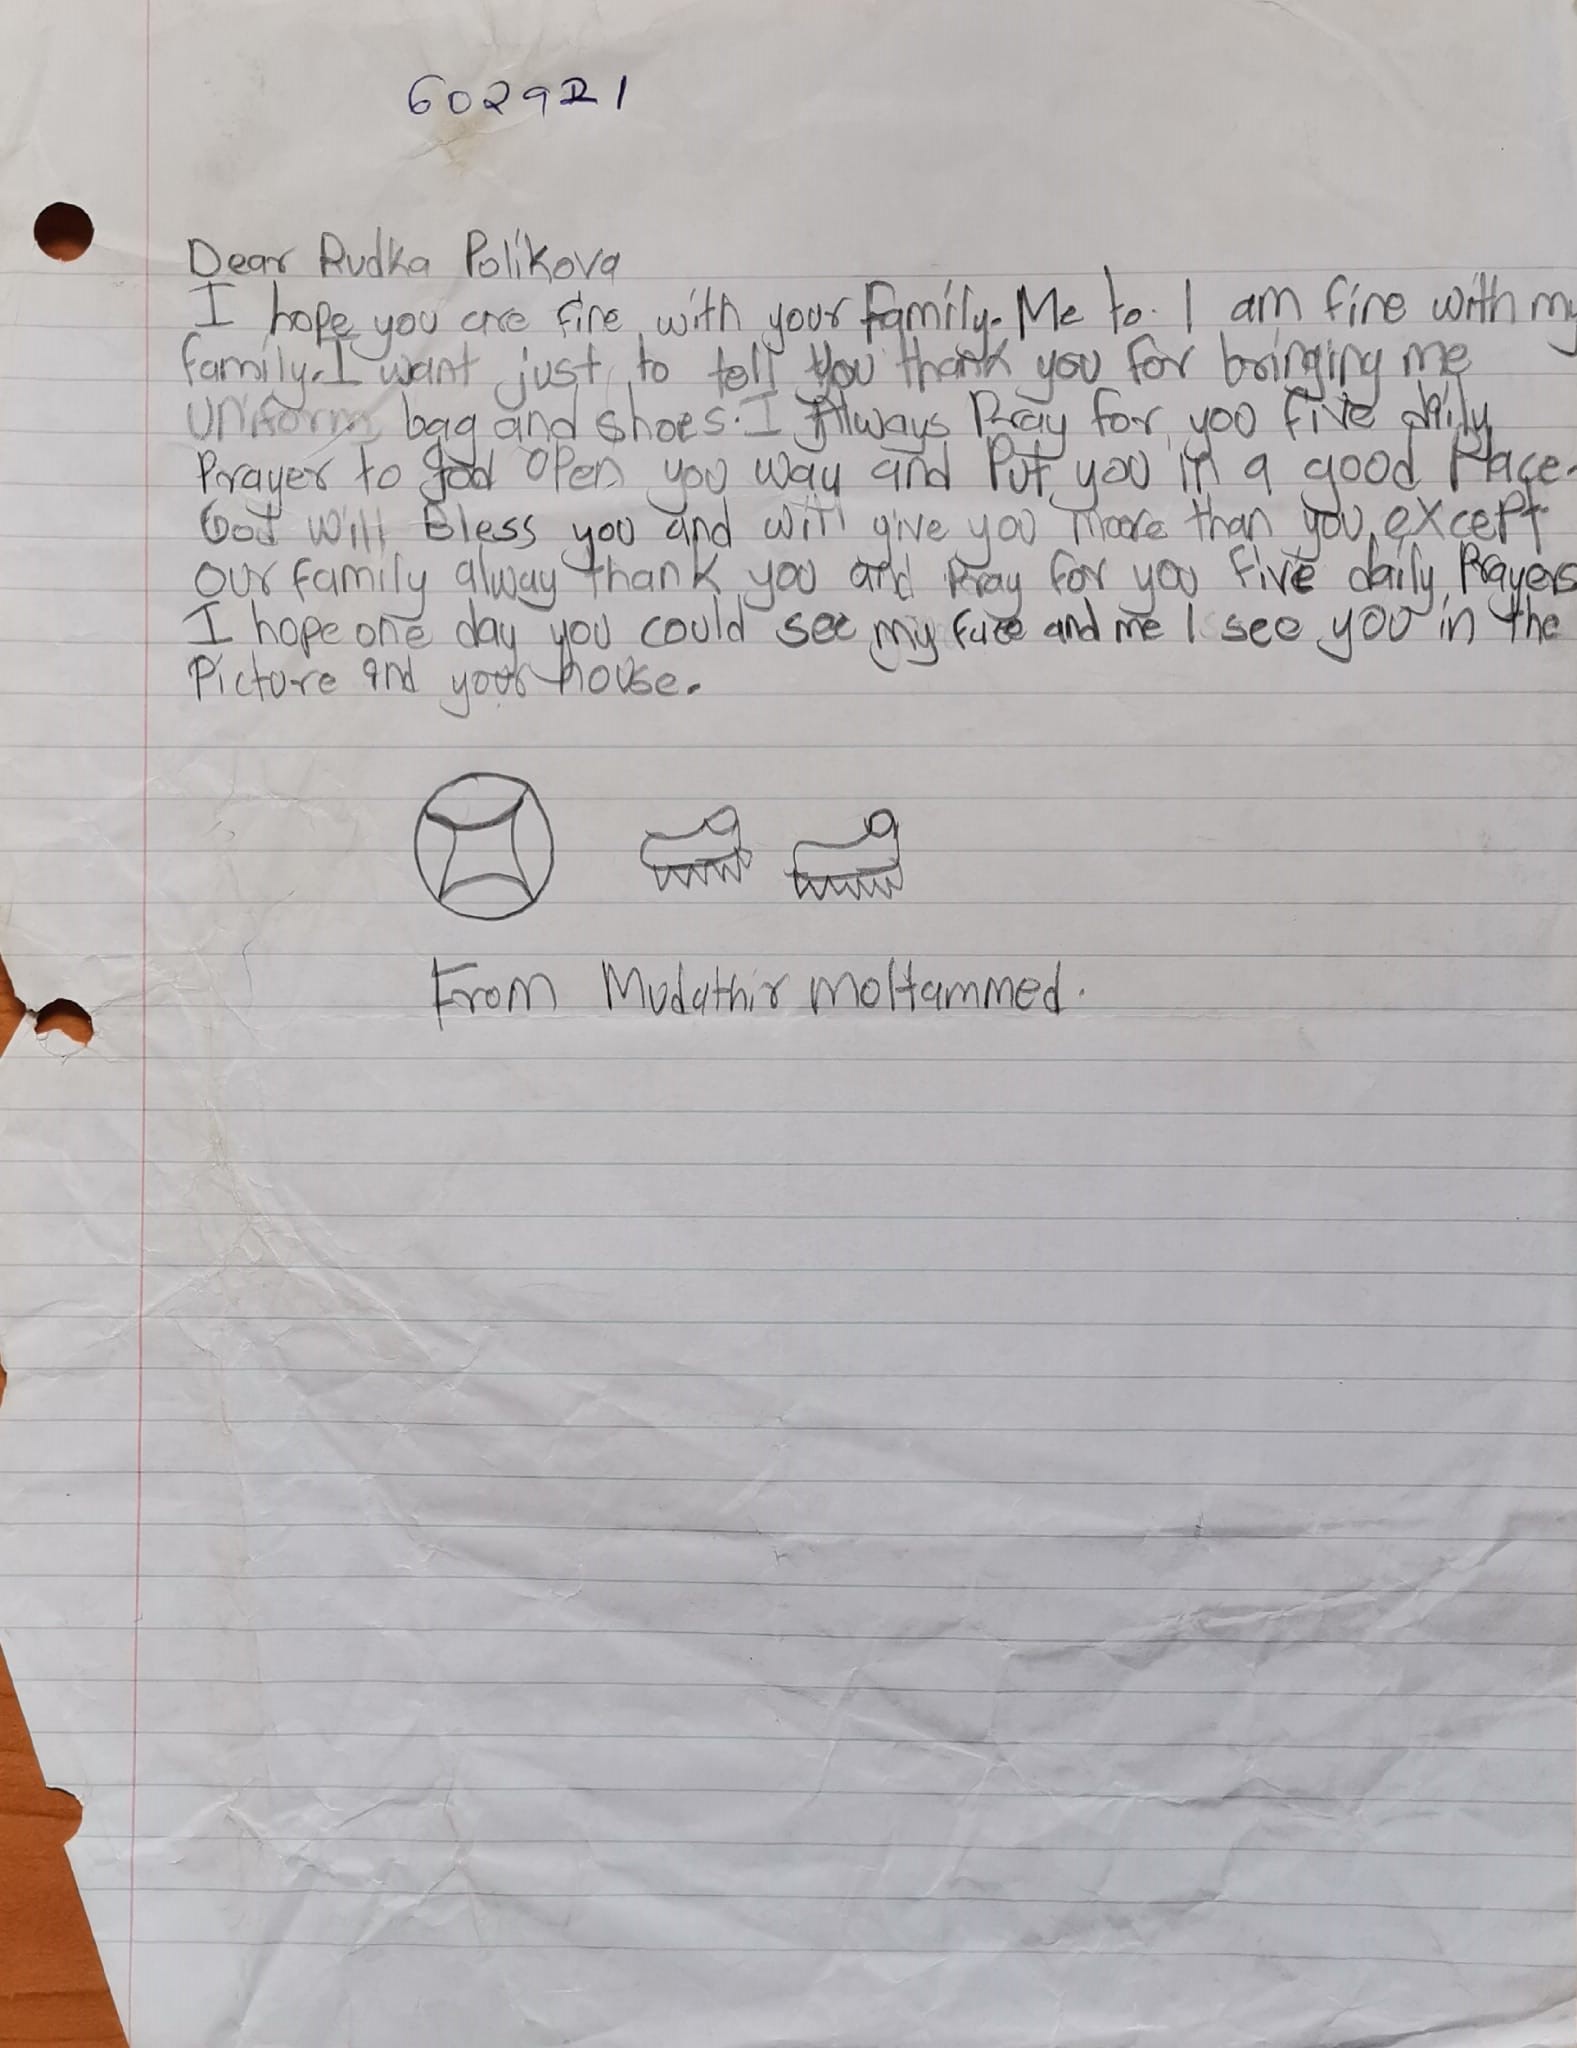 602921
Dear Rudka Polikova
I hope you are fine with your family. Me to. I am fine with my
family. I want just to tell you thank you for bringing me
uniform bag and shoes. I Always Pray for you five daily
Prayer to god open you way and Put you in a good Place.
God will Bless you and will give you moore than you except
our family alway thank you and Pray for you five daily Prayers
I hope one day you could see my face and me I see you in the
Picture and your house.
From Mudathir moHammed.